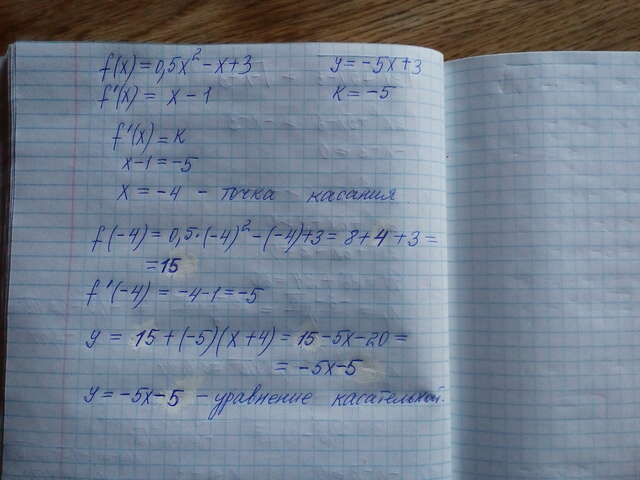 f(x) = 0,5x² - x + 3 y = -5x + 3
f'(x) = x - 1 k = -5
f'(x) = k
x - 1 = -5
x = -4 - точка касания
f(-4) = 0,5·(-4)² - (-4) + 3 = 8 + 4 + 3 =
= 15
f'(-4) = -4 - 1 = -5
y = 15 + (-5)(x + 4) = 15 - 5x - 20 =
= -5x - 5
y = -5x - 5 - уравнение касательной.